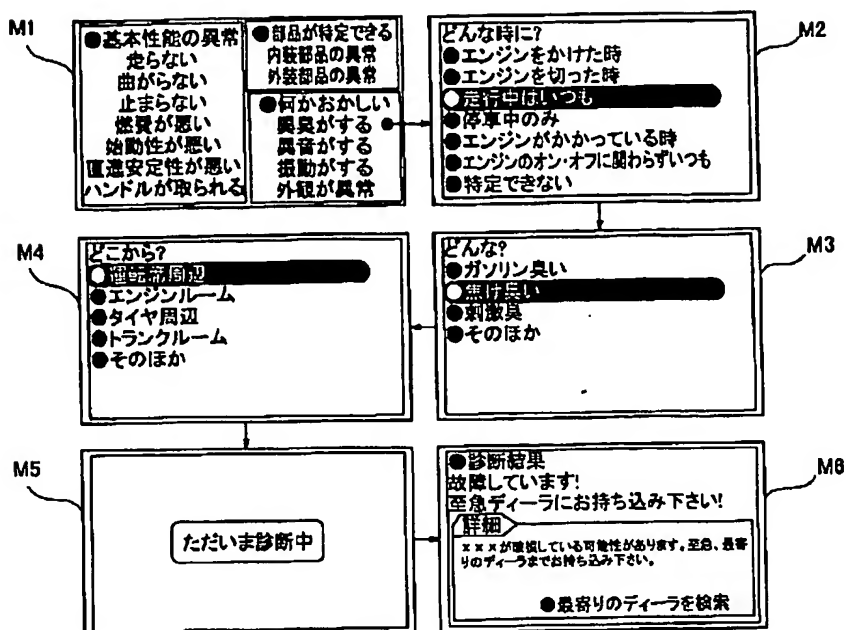 M1
●基本性能の異常
走らない
曲がらない
止まらない
燃費が悪い
始動性が悪い
直進安定性が悪い
ハンドルが取られる
●部品が特定できる
内装部品の異常
外装部品の異常
●何かおかしい
異臭がする
異音がする
振動がする
外観が異常
M2
どんな時に?
●エンジンをかけた時
●エンジンを切った時
●走行中はいつも
●停車中のみ
●エンジンがかかっている時
●エンジンのオン・オフに関わらずいつも
●特定できない
M4
どこから?
●運転席周辺
●エンジンルーム
●タイヤ周辺
●トランクルーム
●そのほか
M3
どんな?
●ガソリン臭い
●焦げ臭い
●刺激臭
●そのほか
M5
ただいま診断中
M6
●診断結果
故障しています!
至急ディーラにお持ち込み下さい!
詳細
×××が破損している可能性があります。至急、最寄
りのディーラまでお持ち込み下さい。
●最寄りのディーラを検索